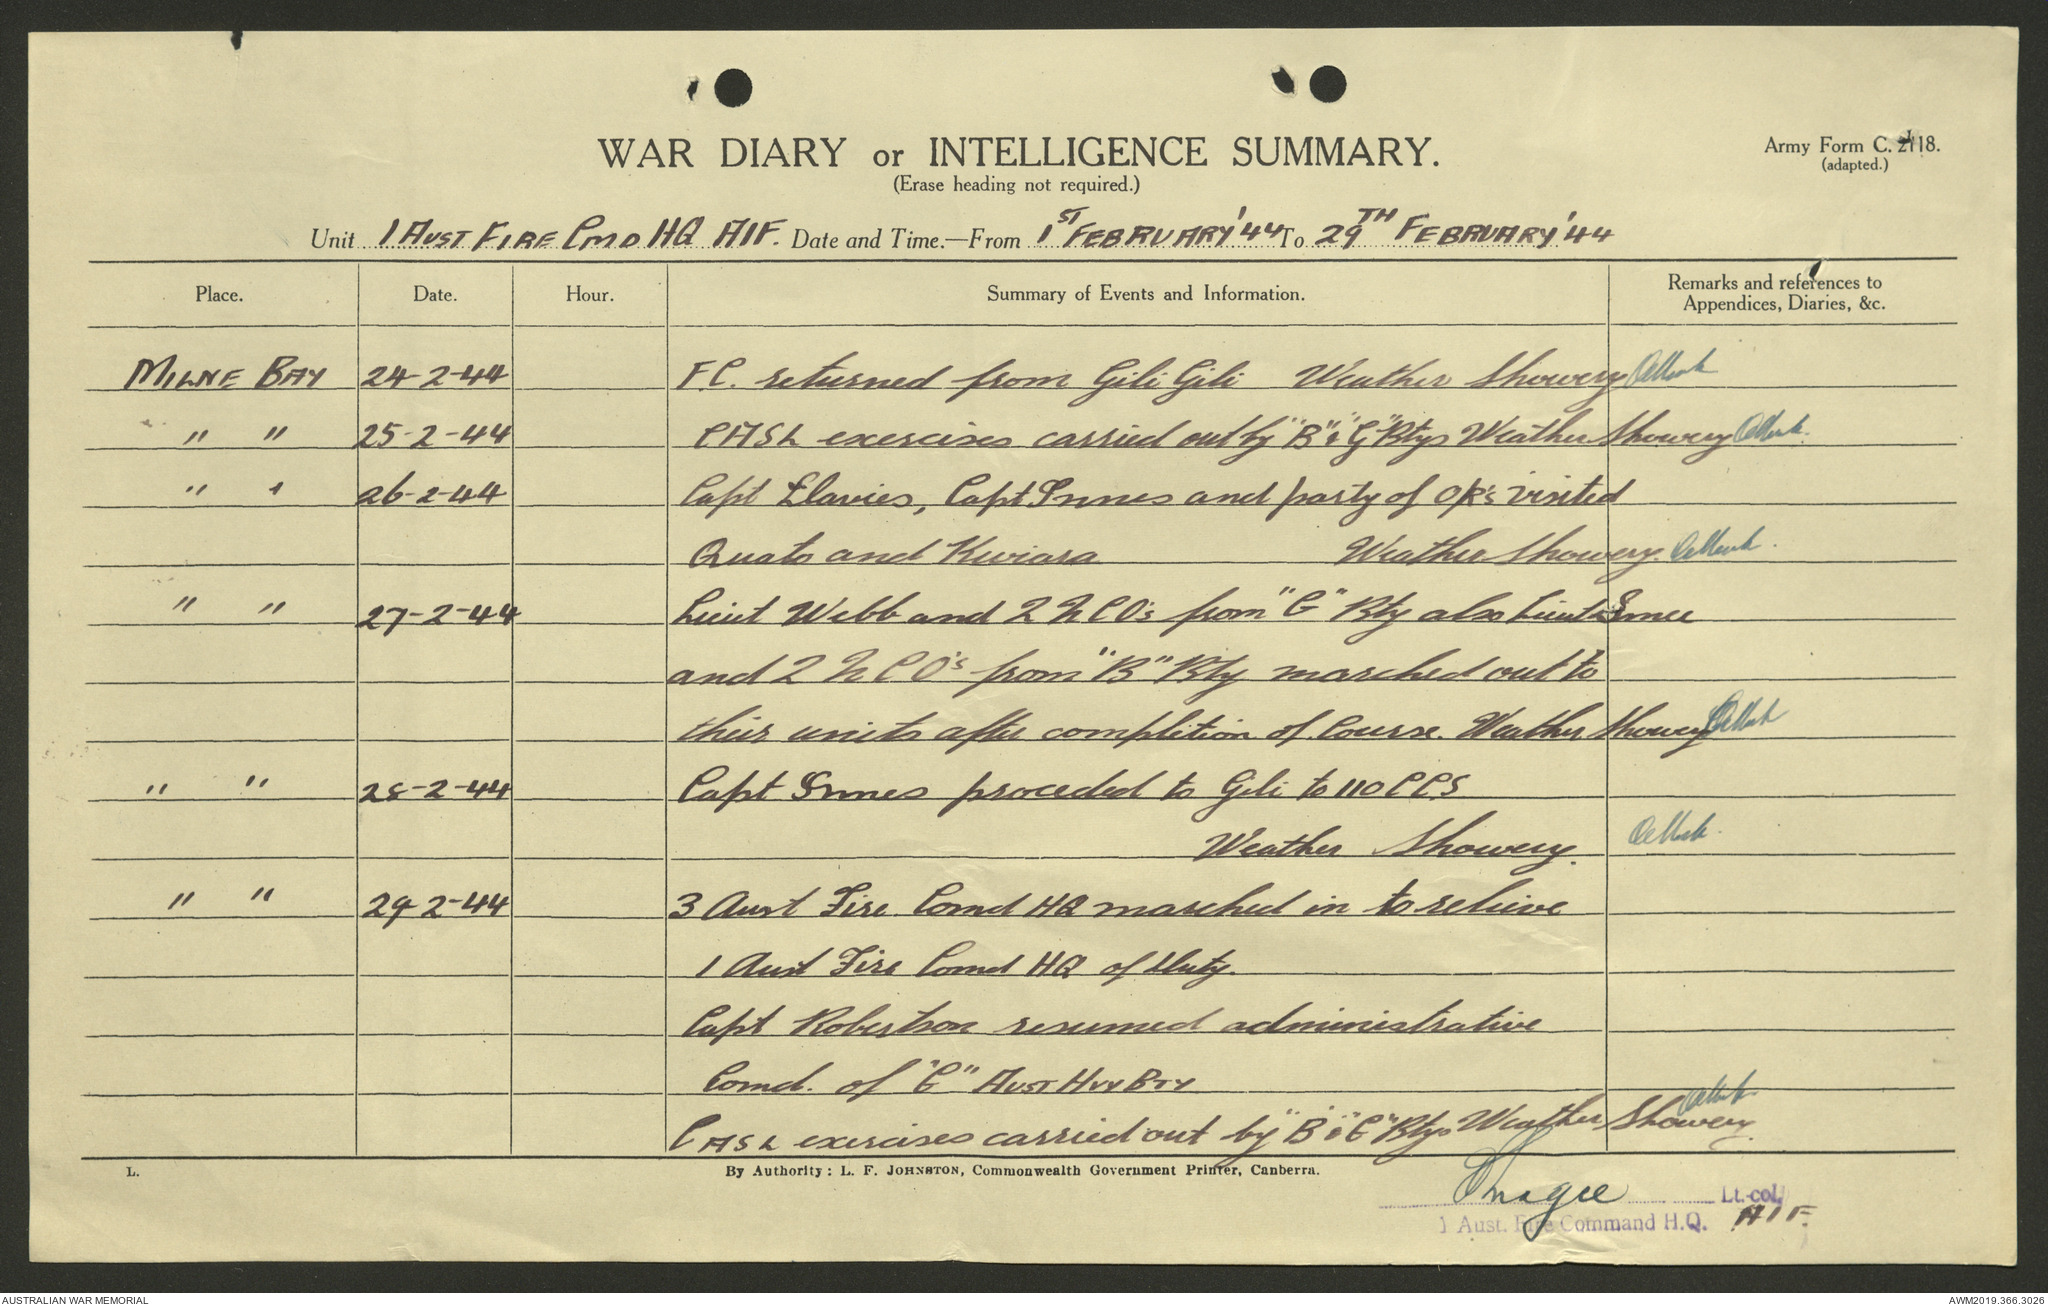 WAR DIARY or INTELLIGENCE SUMMARY.
Army Form C. 2118.
(adapted.)
(Erase heading not required.)
Unit 1 AUST FIRE CMD HQ AIF. Date and Time.—From 1ST FEBRUARY '44 To 29TH FEBRUARY '44
Place. Date. Hour. Summary of Events and Information. Remarks and references to Appendices, Diaries, &c.
MILNE BAY 24-2-44 F.C. returned from Gili Gili Weather Showery
" " 25-2-44 CASL exercises carried out by "B" & "G" Btys Weather Showery
" " 26-2-44 Capt Davies, Capt Innes and party of O/R's visited
Quato and Kwiara Weather Showery.
" " 27-2-44 Lieut Webb and 2 NCO's from "G" Bty also Lieut
and 2 NCO's from "B" Bty marched out to
their units after completion of Course. Weather Showery
" " 28-2-44 Capt Innes proceded to Gili to 110 CCS
Weather Showery.
" " 29-2-44 3 Aust Fire Comd HQ marched in to relieve
1 Aust Fire Comd HQ of duty.
Capt Robertson resumed administrative
Comd. of "G" AUST HVY BTY
CASL exercises carried out by "B" & "G" Btys Weather Showery.
L. By Authority: L. F. JOHNSTON, Commonwealth Government Printer, Canberra.
Lt.-col.
1 Aust. Fire Command H.Q. AIF.
AUSTRALIAN WAR MEMORIAL
AWM2019.366.3026